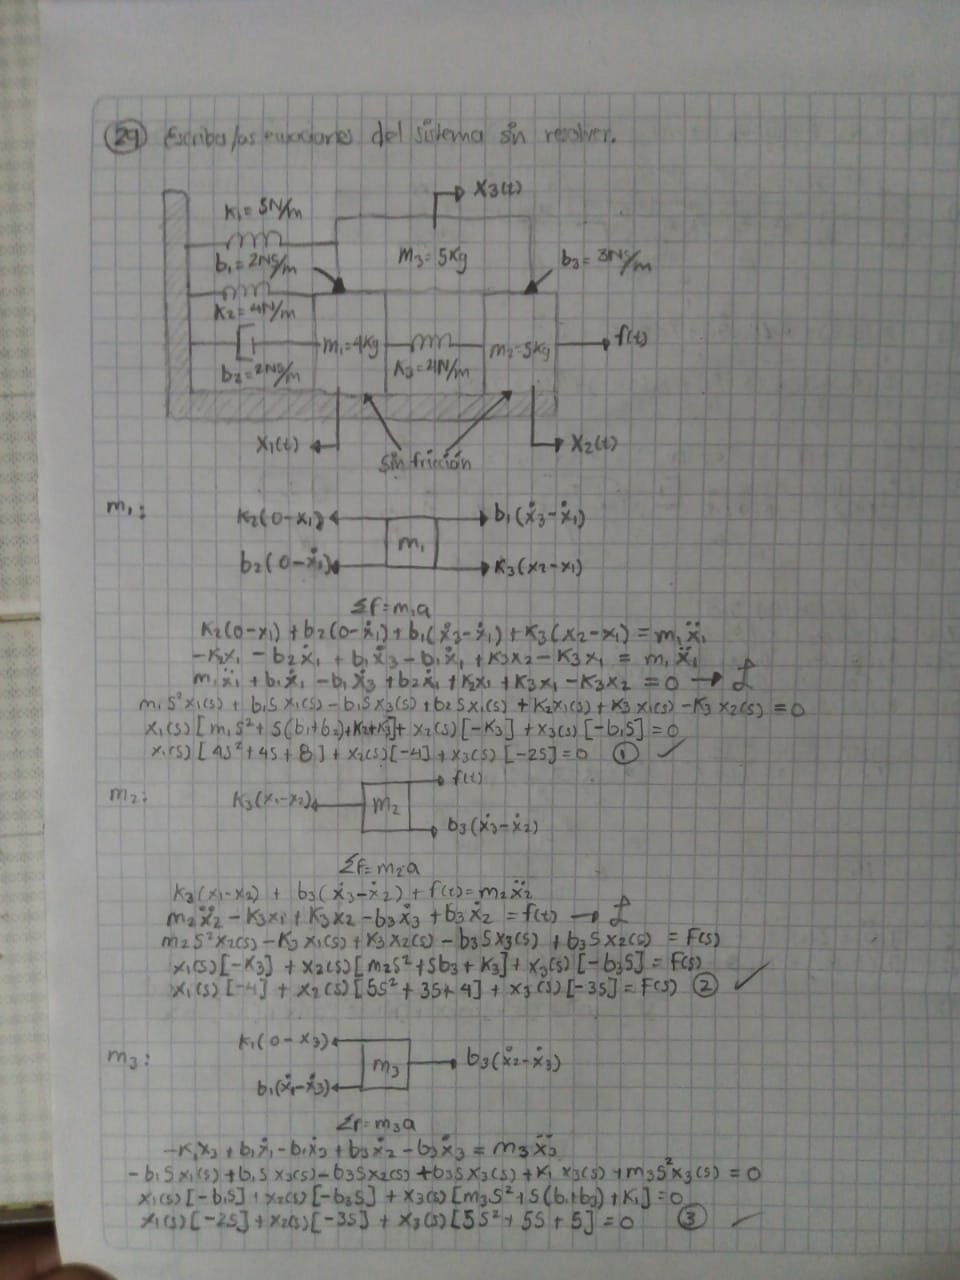 29 Escriba las ecuaciones del sistema sin resolver.
x3(t)
K1=5N/m
m3=5Kg
b1=2Ns/m
b3=3Ns/m
K2=4N/m
m1=4Kg
K3=4N/m
m2=5Kg
f(t)
b2=2Ns/m
x1(t)
Sin fricción
x2(t)
m1:
K2(0-x1)
b1(ẋ3-ẋ1)
m1
b2(0-ẋ1)
K3(x2-x1)
Σf=m1a
K2(0-x1)+b2(0-ẋ1)+b1(ẋ3-ẋ1)+K3(x2-x1)=m1ẍ1
-K2x1-b2ẋ1+b1ẋ3-b1ẋ1+K3x2-K3x1=m1ẍ1
m1ẍ1+b1ẋ1-b1ẋ3+b2ẋ1+K2x1+K3x1-K3x2=0→ℒ
m1s²x1(s)+b1sx1(s)-b1sx3(s)+b2sx1(s)+K2x1(s)+K3x1(s)-K3x2(s)=0
x1(s)[m1s²+s(b1+b2)+K2+K3]+x2(s)[-K3]+x3(s)[-b1s]=0
x1(s)[4s²+4s+8]+x2(s)[-4]+x3(s)[-2s]=0 ① ✓
m2:
f(t)
K3(x1-x2)
m2
b3(ẋ3-ẋ2)
Σf=m2a
K3(x1-x2)+b3(ẋ3-ẋ2)+f(t)=m2ẍ2
m2ẍ2-K3x1+K3x2-b3ẋ3+b3ẋ2=f(t)→ℒ
m2s²x2(s)-K3x1(s)+K3x2(s)-b3sx3(s)+b3sx2(s)=F(s)
x1(s)[-K3]+x2(s)[m2s²+sb3+K3]+x3(s)[-b3s]=F(s)
x1(s)[-4]+x2(s)[5s²+3s+4]+x3(s)[-3s]=F(s) ② ✓
m3:
K1(0-x3)
m3
b3(ẋ2-ẋ3)
b1(ẋ1-ẋ3)
Σf=m3a
-K1x3+b1ẋ1-b1ẋ3+b3ẋ2-b3ẋ3=m3ẍ3
-b1sx1(s)+b1sx3(s)-b3sx2(s)+b3sx3(s)+K1x3(s)+m3s²x3(s)=0
x1(s)[-b1s]+x2(s)[-b3s]+x3(s)[m3s²+s(b1+b3)+K1]=0
x1(s)[-2s]+x2(s)[-3s]+x3(s)[5s²+5s+5]=0 ③ ✓